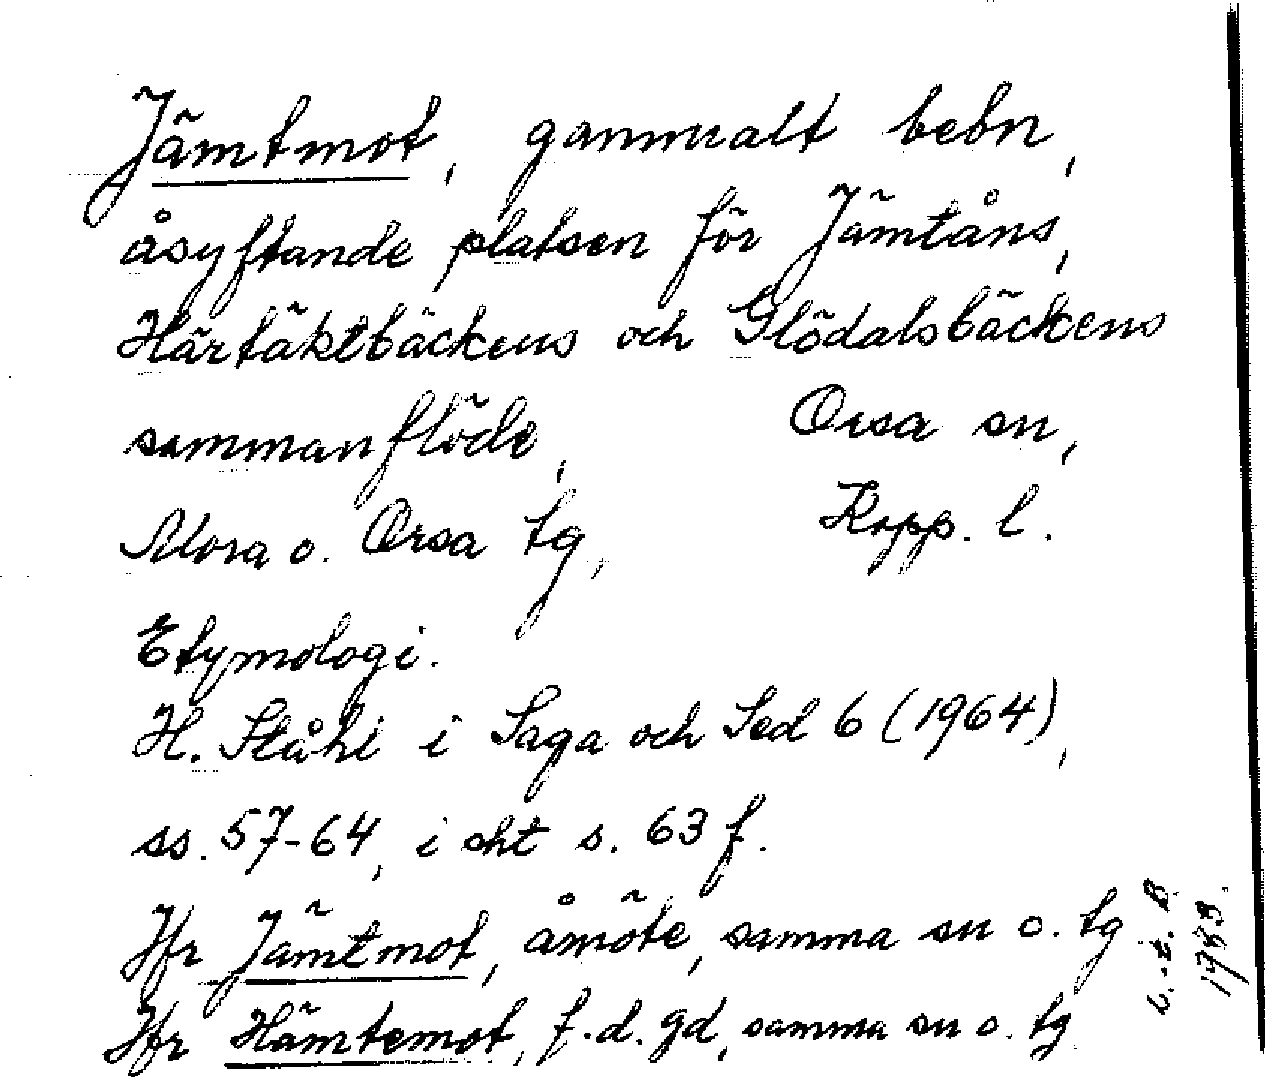 Jämtmot, gammalt bebn,
åsyftande platsen för Jämtåns,
Härtäktbäckens och Glödalsbäckens
sammanflöde, Orsa sn,
Mora o. Orsa tg, Kopp. l.
Etymologi.
H. Ståhl i Saga och Sed 6 (1964),
ss. 57-64, i sht s. 63 f.
Jfr Jämtmot, åmöte, samma sn o. tg
Jfr Hämtemot, f.d. gd, samma sn o. tg
1983.